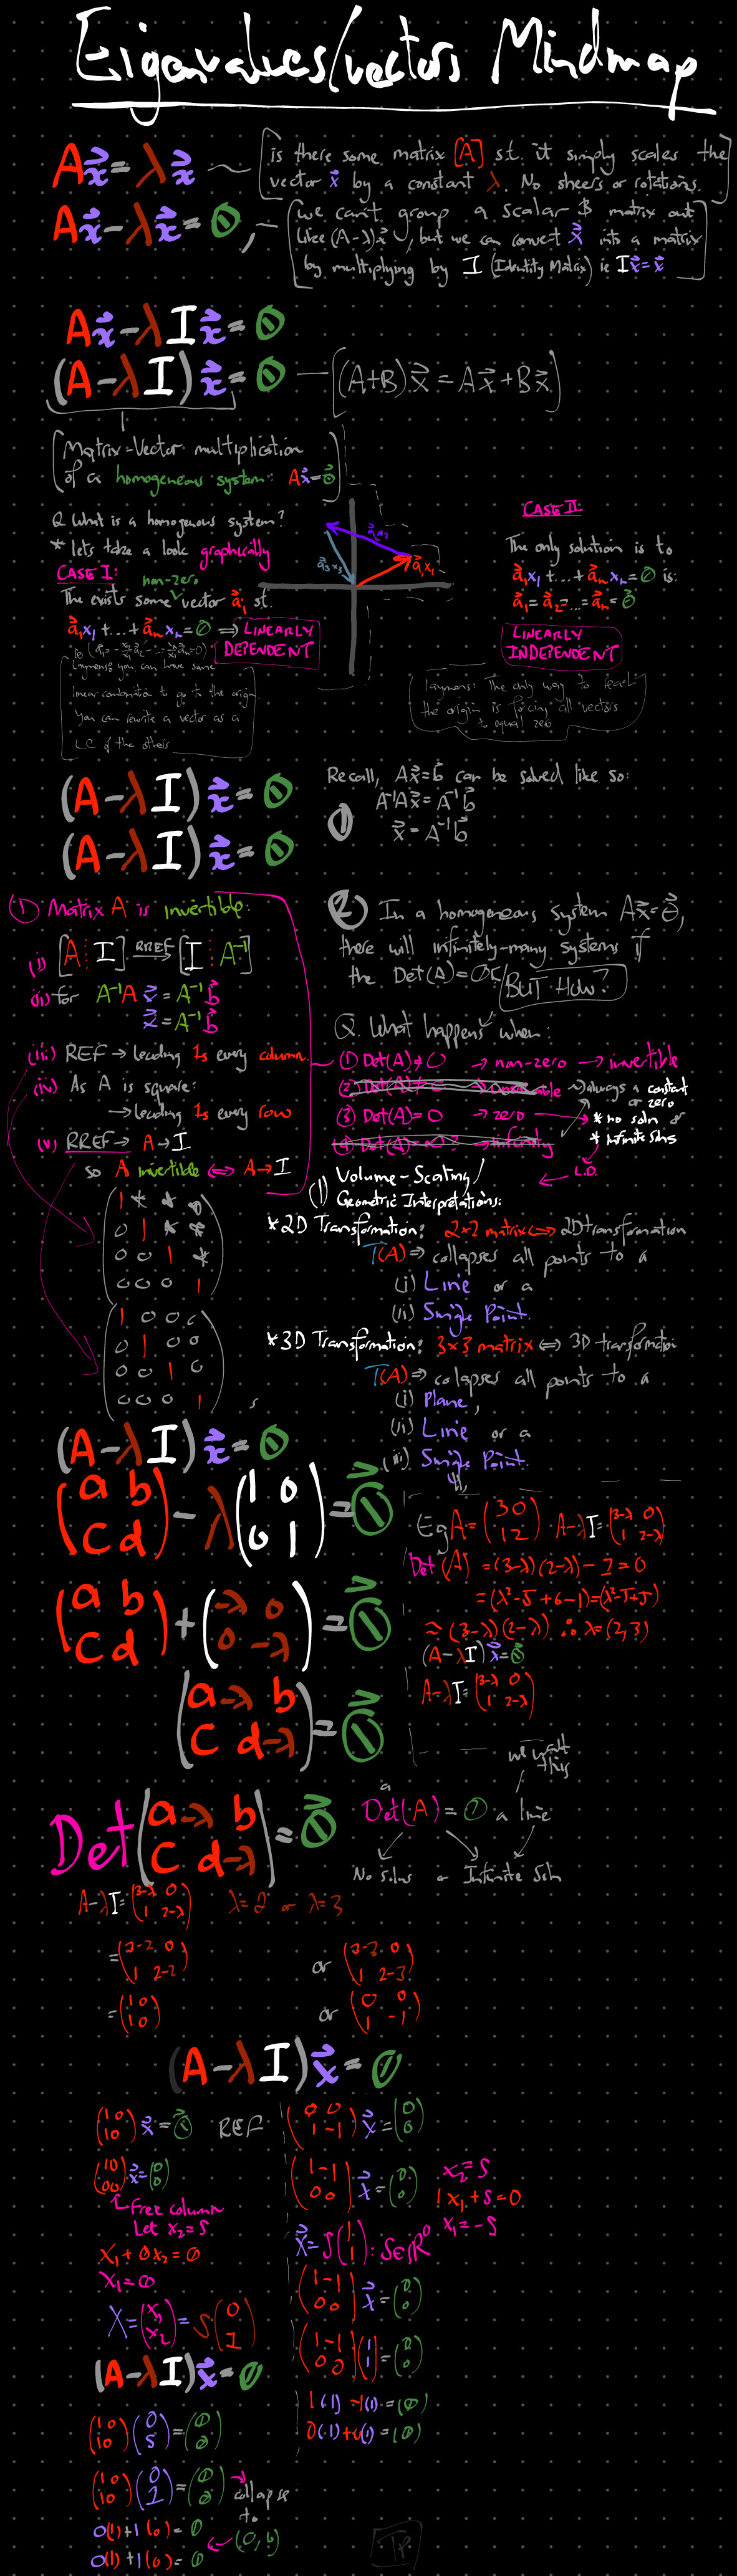 Eigenvalues/vectors Mindmap
Ax⃗ = λx⃗ ~ [is there some matrix [A] s.t. it simply scales the
vector x⃗ by a constant λ. No sheers or rotations.
Ax⃗ - λx⃗ = 0, ~ [we can't group a scalar & matrix out
like (A-λ)x⃗, but we can convert x⃗ into a matrix
by multiplying by I (Identity Matrix) ie Ix⃗ = x⃗]
Ax⃗ - λIx⃗ = 0
(A - λI)x⃗ = 0 — [(A+B)x⃗ = Ax⃗ + Bx⃗]
[Matrix-Vector multiplication
of a homogeneous system: Ax⃗ = 0⃗]
Q. What is a homogenous system?
* lets take a look graphically
CASE I:
non-zero
The exists some vector a⃗i st.
a⃗1x1 + ... + a⃗nxn = 0 ⇒ LINEARLY DEPENDENT
Laymens: you can have some
linear combination to go to the origin.
You can rewrite a vector as a
LC of the others
a⃗1x1
a⃗2x2
a⃗3x3
CASE II
The only solution is to
a⃗1x1 + ... + a⃗nxn = 0 is:
a⃗1 = a⃗2 = ... = a⃗n = 0⃗
LINEARLY
INDEPENDENT
Laymens: The only way to reach
the origin is forcing all vectors
to equal zero
(A - λI)x⃗ = 0
(A - λI)x⃗ = 0
Recall, Ax⃗ = b⃗ can be solved like so:
① A⁻¹Ax⃗ = A⁻¹b⃗
x⃗ = A⁻¹b⃗
① Matrix A is invertible:
(i) [A ⋮ I] RREF→ [I ⋮ A⁻¹]
(ii) for A⁻¹Ax⃗ = A⁻¹b⃗
x⃗ = A⁻¹b⃗
(iii) REF → leading 1s every column
(iv) As A is square:
→ leading 1s every row
(v) RREF → A → I
so A invertible ⇔ A → I
1 * * *
0 1 * *
0 0 1 *
0 0 0 1
1 0 0 0
0 1 0 0
0 0 1 0
0 0 0 1
② In a homogeneous system Ax⃗ = 0⃗,
there will infinitely-many systems if
the Det(A) = 0. BUT HOW?
Q. What happens when:
① Det(A) ≠ 0 → non-zero → invertible
~ always a constant
or zero
③ Det(A) = 0 → zero → * no soln or
* infinite solns
L.D.
(1) Volume-Scaling /
Geometric Interpretations:
* 2D Transformation: 2×2 matrix ⇔ 2D transformation
T(A) ⇒ collapses all points to a
(i) Line or a
(ii) Single Point.
* 3D Transformation: 3×3 matrix ⇔ 3D transformation
T(A) ⇒ collapses all points to a
(i) Plane,
(ii) Line or a
(iii) Single Point.
(A - λI)x⃗ = 0
(a b c d) - λ(1 0 0 1) = 0⃗
(a b c d) + (-λ 0 0 -λ) = 0⃗
(a-λ b c d-λ) = 0⃗
Eg A = (3 0 1 2) A-λI = (3-λ 0 1 2-λ)
Det(A) = (3-λ)(2-λ) - 1 = 0
= (λ²-5+6-1) = (λ²-5+5)
≈ (3-λ)(2-λ) ∴ λ = (2,3)
(A - λI)x⃗ = 0
A-λI = (3-λ 0 1 2-λ)
we want
this
Det(a-λ b c d-λ) = 0⃗
Det(A) = 0 a line
No solns or Infinite Soln
A-λI = (3-λ 0 1 2-λ) λ=2 or λ=3
= (3-2 0 1 2-2) or (3-3 0 1 2-3)
= (1 0 1 0) or (0 0 1 -1)
(A - λI)x⃗ = 0
(1 0 1 0)x⃗ = 0⃗ REF
(1 0 0 0)x⃗ = (0 0)
free column
Let x2 = s
x1 + 0x2 = 0
x1 = 0
X = (x1 x2) = s(0 1)
(A - λI)x⃗ = 0
(1 0 1 0)(0 s) = (0 0)
(1 0 1 0)(0 1) = (0 0) → collapse
to
0(1)+1(0) = 0 ← (0,0)
0(1)+1(0) = 0
(0 0 1 -1)x⃗ = (0 0)
(1 -1 0 0)x⃗ = (0 0)
x2 = s
1x1 + s = 0
x1 = -s
x⃗ = s(1 1) : s∈ℝ
(1 -1 0 0)x⃗ = (0 0)
(1 -1 0 0)(1 1) = (0 0)
1(1) -1(1) = (0)
0(1)+0(1) = (0)